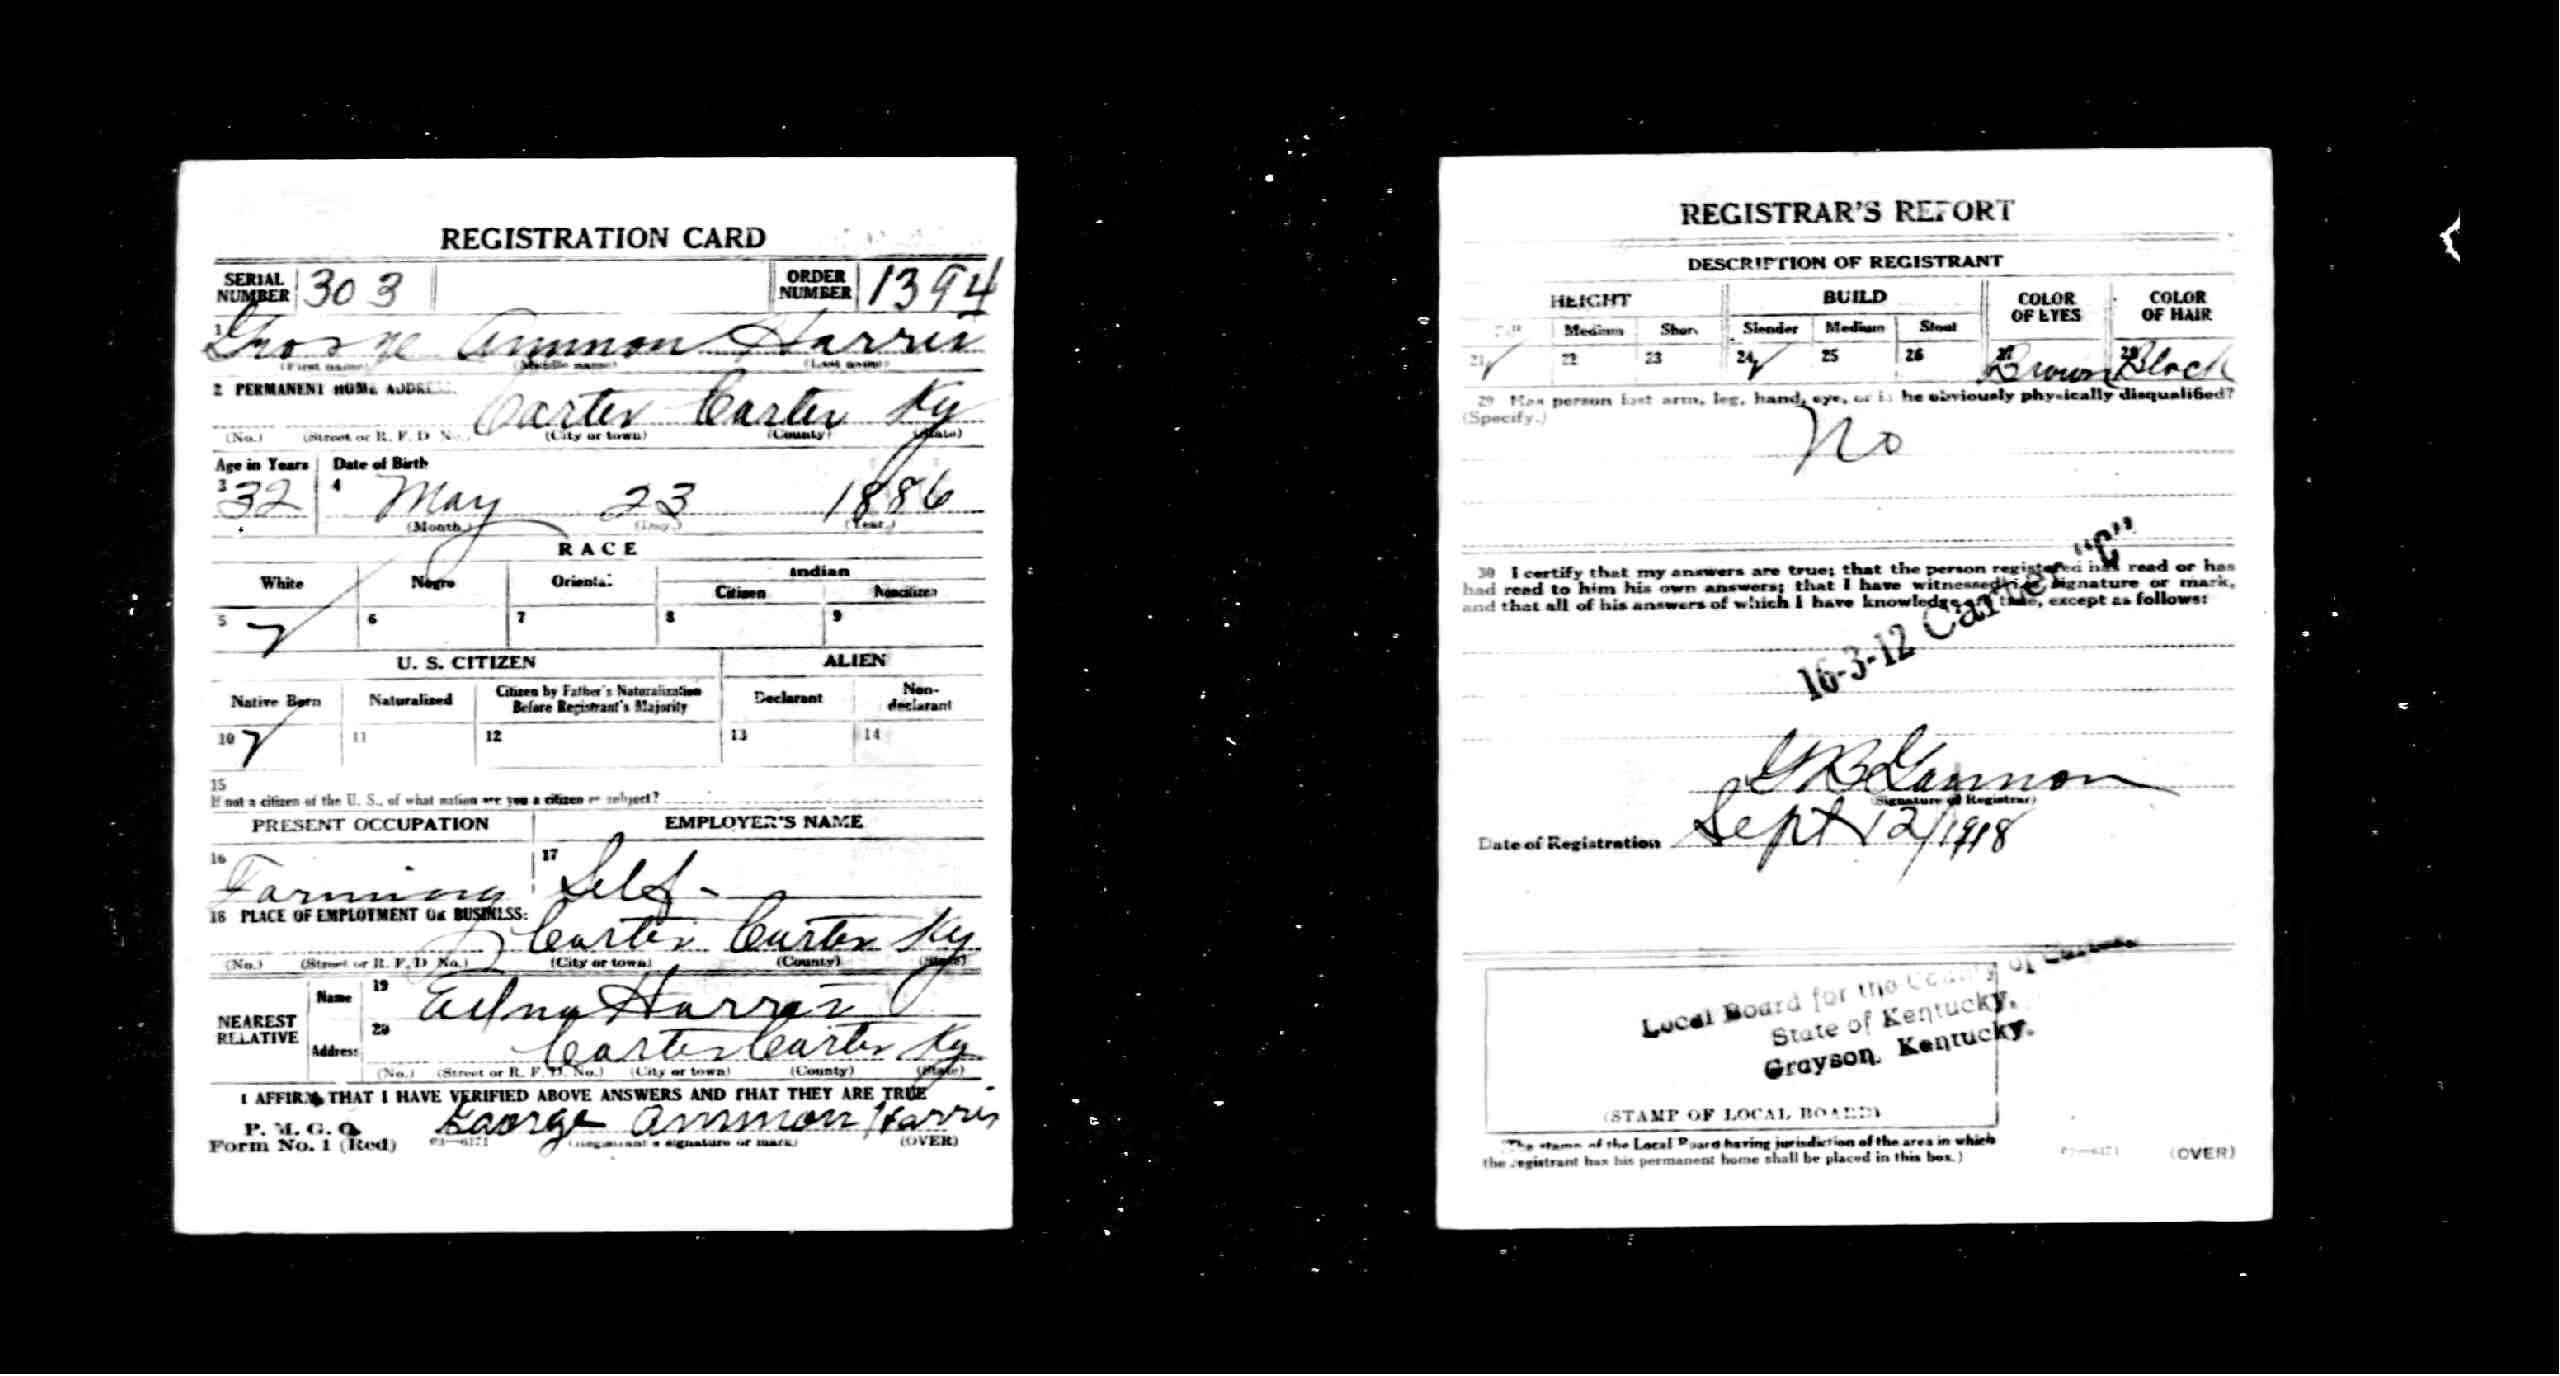 REGISTRATION CARD
SERIAL NUMBER 303 ORDER NUMBER 1394
1 George Ammon Harris
(First name) (Middle name) (Last name)
2 PERMANENT HOME ADDRESS:
Carter Carter Ky
(No.) (Street or R. F. D. No.) (City or town) (County) (State)
Age in Years Date of Birth
3 32 4 May 23 1886
(Month.) (Day.) (Year.)
RACE
White Negro Oriental Indian
Citizen Noncitizen
5 6 7 8 9
U. S. CITIZEN ALIEN
Native Born Naturalized Citizen by Father's Naturalization Before Registrant's Majority Declarant Non-declarant
10 11 12 13 14
15
If not a citizen of the U. S., of what nation are you a citizen or subject?
PRESENT OCCUPATION EMPLOYER'S NAME
16 Farming 17 Self
18 PLACE OF EMPLOYMENT OR BUSINESS:
Carter Carter Ky
(No.) (Street or R. F. D. No.) (City or town) (County) (State)
NEAREST RELATIVE
Name 19 Edna Harris
Address 20 Carter Carter Ky
(No.) (Street or R. F. D. No.) (City or town) (County) (State)
I AFFIRM THAT I HAVE VERIFIED ABOVE ANSWERS AND THAT THEY ARE TRUE
P. M. G. O.
Form No. 1 (Red) 03—6171 George Ammon Harris
(Registrant's signature or mark) (OVER)
REGISTRAR'S REPORT
DESCRIPTION OF REGISTRANT
HEIGHT BUILD COLOR OF EYES COLOR OF HAIR
Tall Medium Short Slender Medium Stout
21 22 23 24 25 26 27 Brown 28 Black
29 Has person lost arm, leg, hand, eye, or is he obviously physically disqualified?
(Specify.)
No
30 I certify that my answers are true; that the person registered has read or has
had read to him his own answers; that I have witnessed his signature or mark,
and that all of his answers of which I have knowledge are true, except as follows:
16-3-12 Carter "C"
G B Gannon
(Signature of Registrar)
Date of Registration Sept 12/1918
Local Board for the County of Carter
State of Kentucky.
Grayson, Kentucky.
(STAMP OF LOCAL BOARD)
(The stamp of the Local Board having jurisdiction of the area in which
the registrant has his permanent home shall be placed in this box.)
03—6171 (OVER)